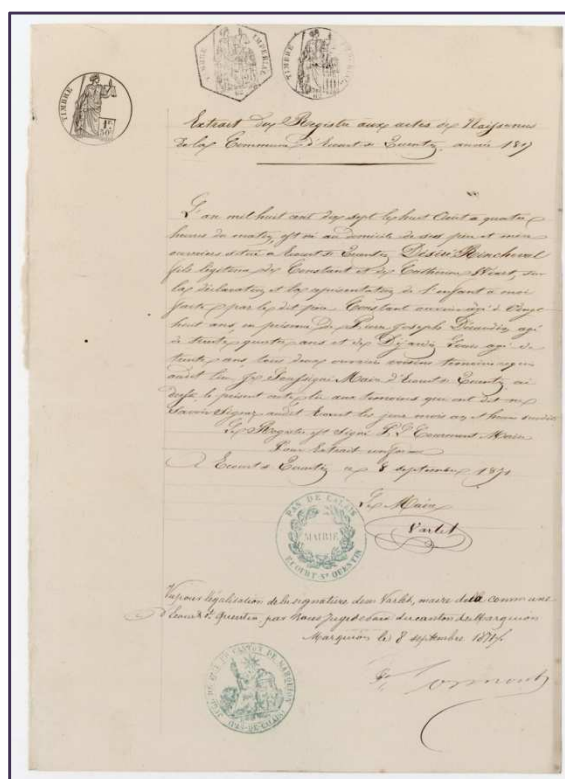 TIMBRE IMPÉRIAL
TIMBRE
TIMBRE
1F 50c
Extrait du Registre aux actes de Naissances
de la Commune d'Ecourt St Quentin, année 1817
L'an mil huit cent dix sept le huit Aout à quatre
heures du matin, est né au domicile de ses père et mère
ouvriers à Ecourt St Quentin, Désiré
fils légitime de Constant et de Catherine sur
la déclaration et la représentation de l'enfant à moi
faite par le dit père Constant ouvrier âgé de vingt
huit ans, en présence de Pierre Joseph Dejardin agé
de trente quatre ans et de Dejardin Louis agé de
trente ans, tous deux ouvriers voisins témoins requis
audit lieu Je Soussigné Maire d'Ecourt St Quentin, ai
le présent acte, lu aux témoins qui ont dit ne
Savoir Signer audit Ecourt les jour mois an et heure susdits
Le Registre est signé Maire
Pour Extrait conforme
A Ecourt St Quentin ce 8 septembre 1871
Le Maire
Varlet
PAS DE CALAIS
MAIRIE
ECOURT-St QUENTIN
Vu pour légalisation de la signature de m Varlet, maire de la commune
d'Ecourt St Quentin, par Nous juge de paix du canton de Marquion
Marquion le 8 septembre 1871
DU CANTON DE MARQUION
(PAS-DE-CALAIS)